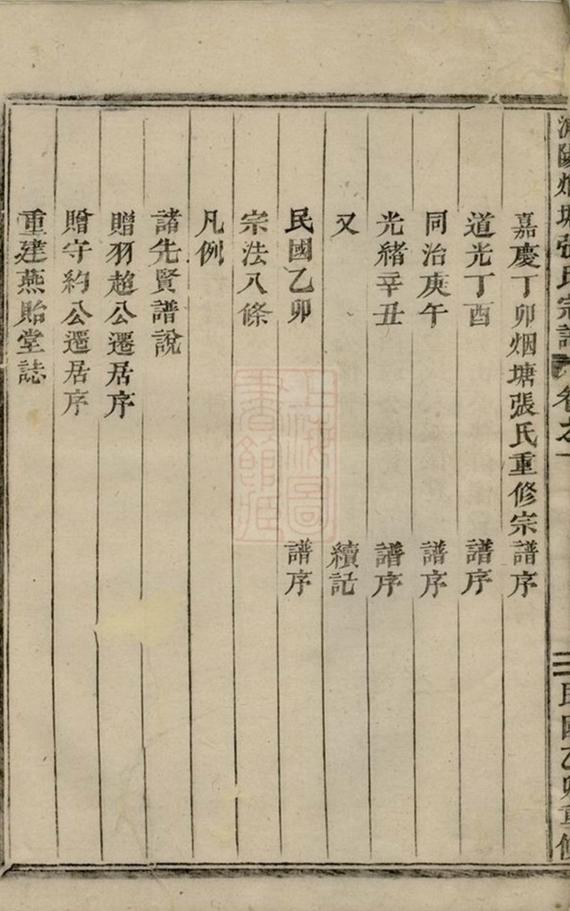 浦陽烟塘張氏宗譜 卷之一 民國乙卯重修
嘉慶丁卯烟塘張氏重修宗譜序
道光丁酉 譜序
同治庚午 譜序
光緒辛丑 譜序
又 續記
民國乙卯 譜序
宗法八條
凡例
諸先賢譜說
贈羽超公遷居序
贈守約公遷居序
重建燕貽堂誌
上海圖
書館藏